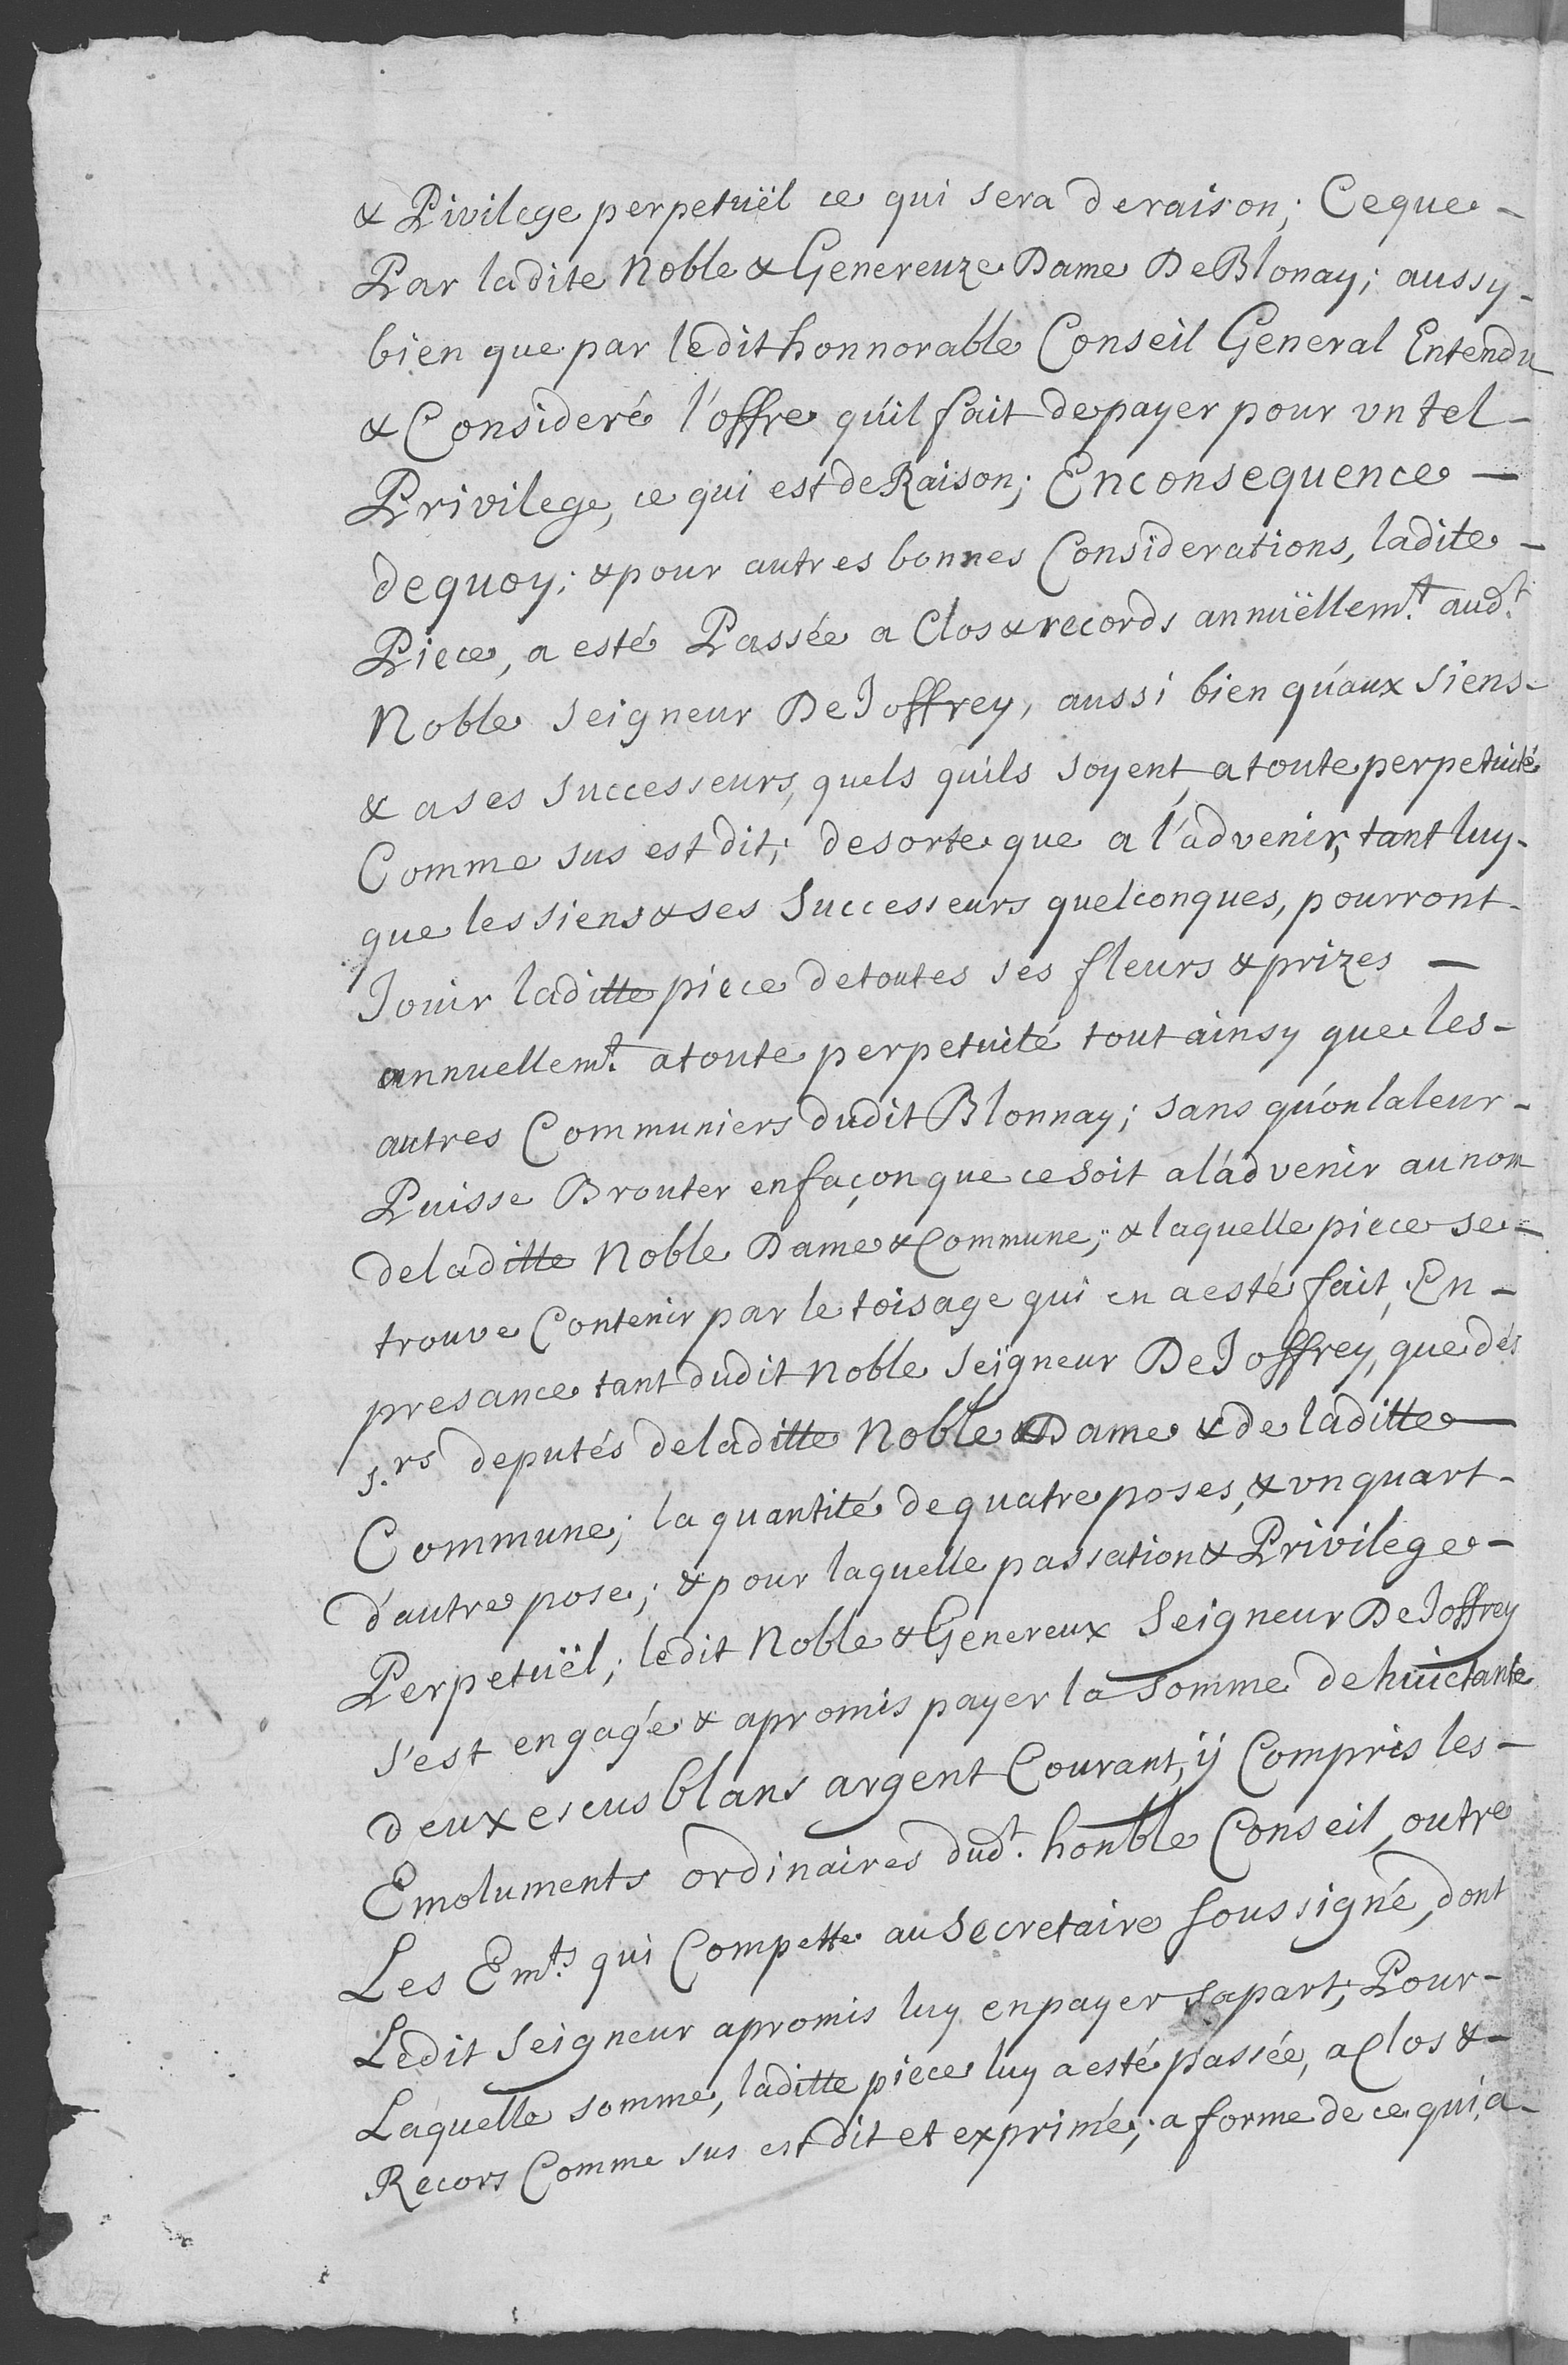 & Pivilege perpetuël ce qui sera de raison; Ce que -
Par ladite Noble & Genereuze Dame De Blonay; aussy -
bien que par ledit honnorable Conseil General Entendu
& Consideré l'offre qu'il fait de payer pour vn tel -
Privilege, ce qui est de Raison; En consequence -
de quoy; & pour autres bonnes Considerations, ladite -
Piece, a esté Passée a Clos & records annuëllem.t aud.t
Noble Seigneur De Joffrey, aussi bien qu'aux Siens -
& a ses Successeurs, quels qu'ils soyent, a toute perpetuité
Comme sus est dit; de sorte que a l'advenir, tant luy -
que les siens & ses Successeurs quelconques, pourront -
Jouir laditte piece de toutes ses fleurs & prizes -
annuellem.t a toute perpetuité tout ainsy que les -
autres Communiers dudit Blonnay; sans qu'on la leur -
Puisse Brouter en façon que ce soit a l'advenir au nom
de laditte Noble Dame & Commune; & laquelle piece se -
trouve Contenir par le toisage qui en a esté fait, En -
presance tant dudit Noble Seigneur De Joffrey, que dés
s.rs deputés de laditte Noble Dame & de laditte -
Commune; la quantité de quatre poses, & vn quart -
d'autre pose; & pour laquelle passation & Privilege -
Perpetuël; ledit Noble & Genereux Seigneur De Joffrey
s'est engagé & a promis payer la somme de huictante
deux escus blans argent Courant, ij Compris les -
Emoluments ordinaires dud.t honble Conseil, outre
Les Em.ts qui Compette au Secretaire soussigné, dont
Ledit Seigneur a promis luy en payer sa part; Pour -
Laquelle somme, laditte piece luy a esté passée, a Clos & -
Recors Comme sus est dit et exprimé; a forme de ce qui a -